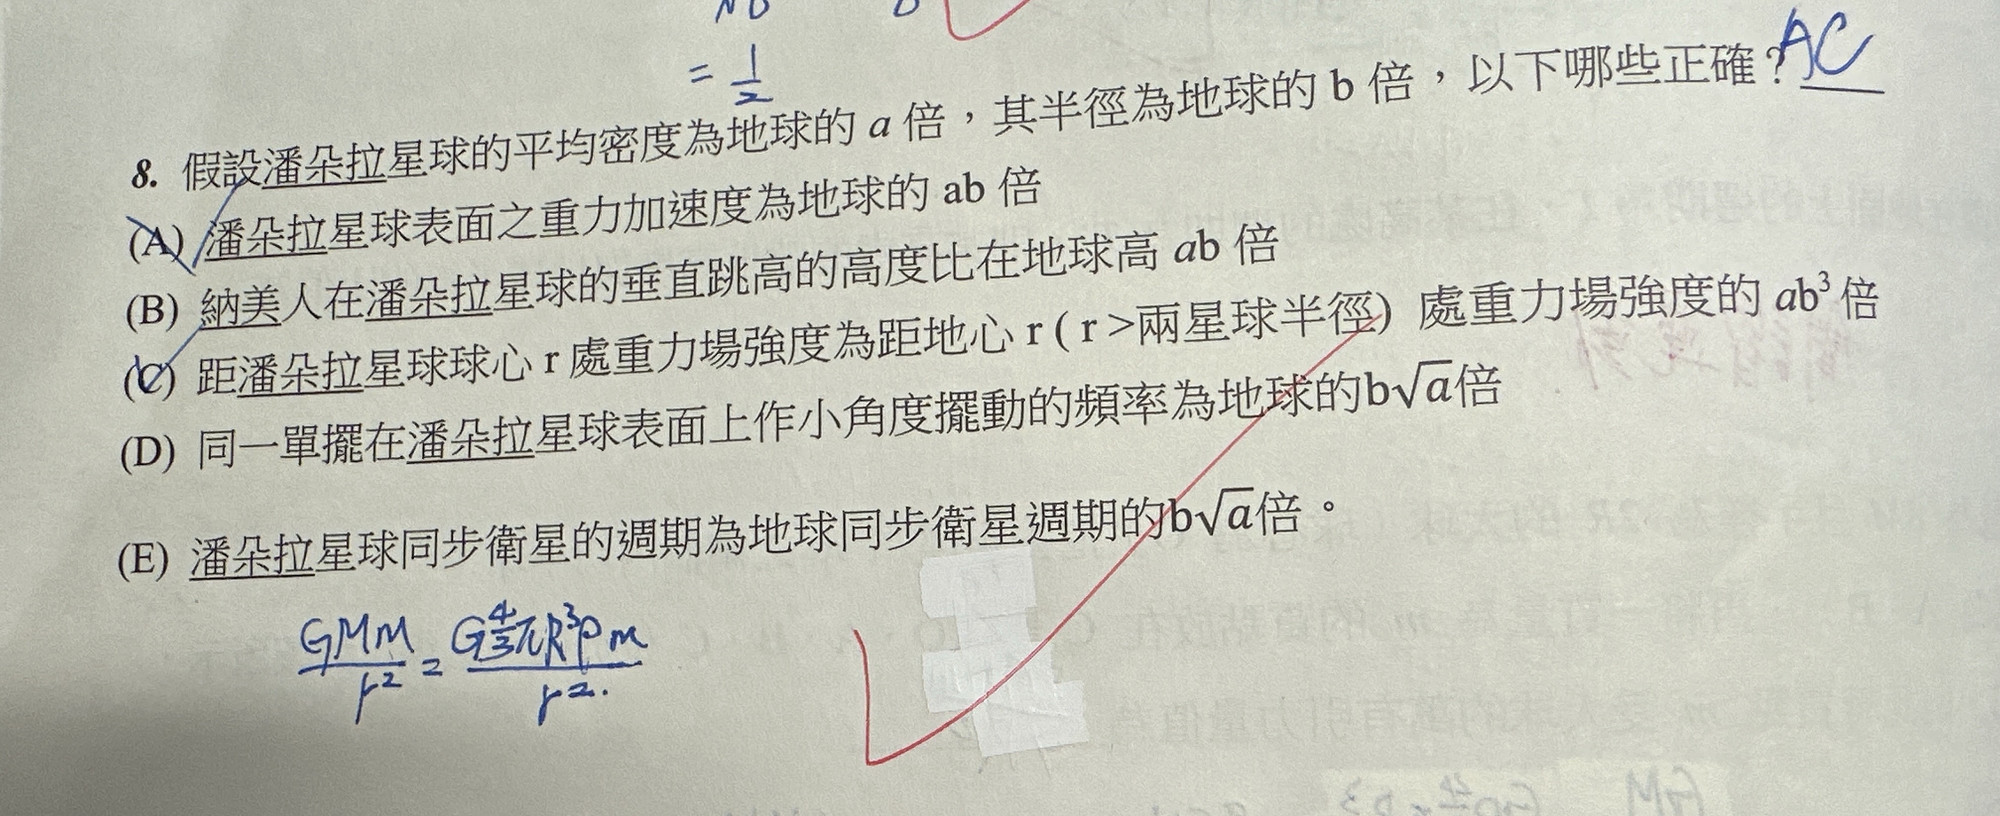 = 1/2
AC
8. 假設潘朵拉星球的平均密度為地球的 a 倍，其半徑為地球的 b 倍，以下哪些正確？
(A) 潘朵拉星球表面之重力加速度為地球的 ab 倍
(B) 納美人在潘朵拉星球的垂直跳高的高度比在地球高 ab 倍
(C) 距潘朵拉星球球心 r 處重力場強度為距地心 r ( r >兩星球半徑) 處重力場強度的 ab³ 倍
(D) 同一單擺在潘朵拉星球表面上作小角度擺動的頻率為地球的b√a倍
(E) 潘朵拉星球同步衛星的週期為地球同步衛星週期的b√a倍。
GMm/r² = G4/3πR³ρm/r².